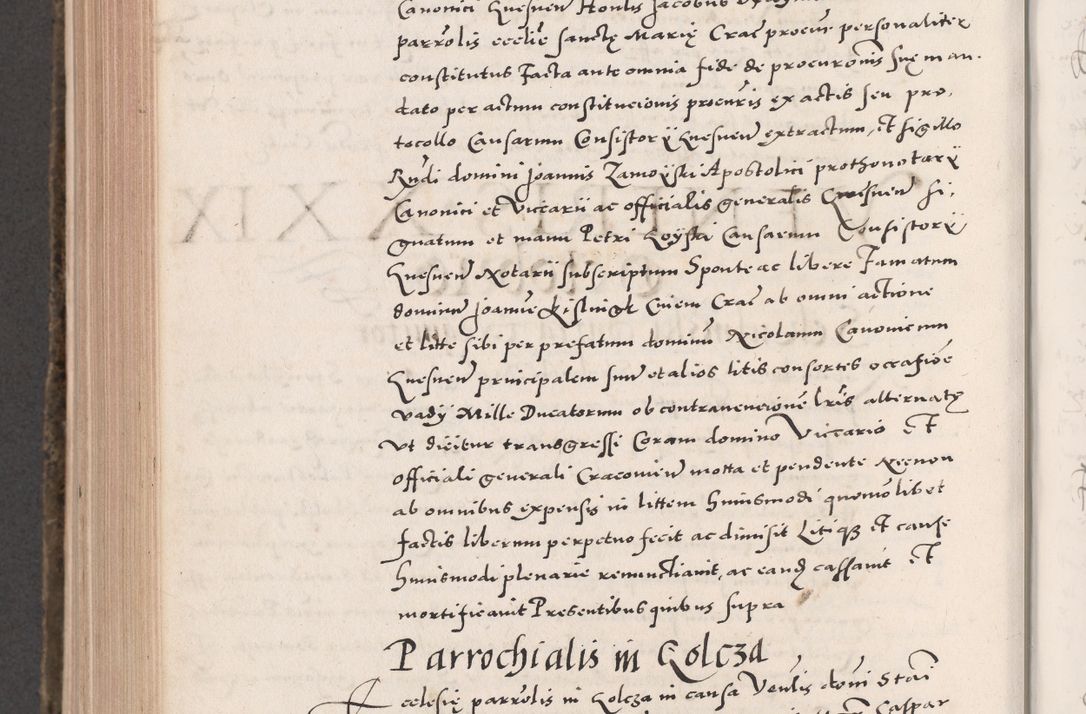 Canonici Gnesnen Honlis Jacobus
parrolis ecclie sanctę Marię Crac procur personaliter
constitutus facta ante omnia fide de procuronis suę man-
dato per actum constitucionis procuris ex actis seu pro-
tocollo Causarum Consistorÿ Gnesnen extractum, et sigillo
Rndi domini Joannis Zamoÿski Apostolici prothonotarÿ
Canonici et Vicarii ac officialis generalis Gnesnen si-
gnatum et manu Petri Causarum Consistorÿ
Gnesnen Notarii subscriptum Sponte ac libere famatum
dominum Joannem Civem Crac ab omni actione
et litte sibi per prefatum dominum Nicolaum Canonicum
Gnesnen principalem suum et alios litis consortes occasione
vadÿ Mille Ducatorum ob contravencionem lris alternatę
Ut dicitur transgressi Coram domino Vicario et
officiali generali Cracovien motta et pendente Necnon
ab omnibus expensis in littem huiusmodi quomolibet
factis liberum perpetuo fecit ac dimisit Litique et cause
huiusmodi plenarie renunctiavit, ac eand cassavit et
mortificavit Presentibus quibus supra
Parrochialis in Golcza
Ecclesię parrolis in Golcza in causa Venlis domi Stani
Caspar